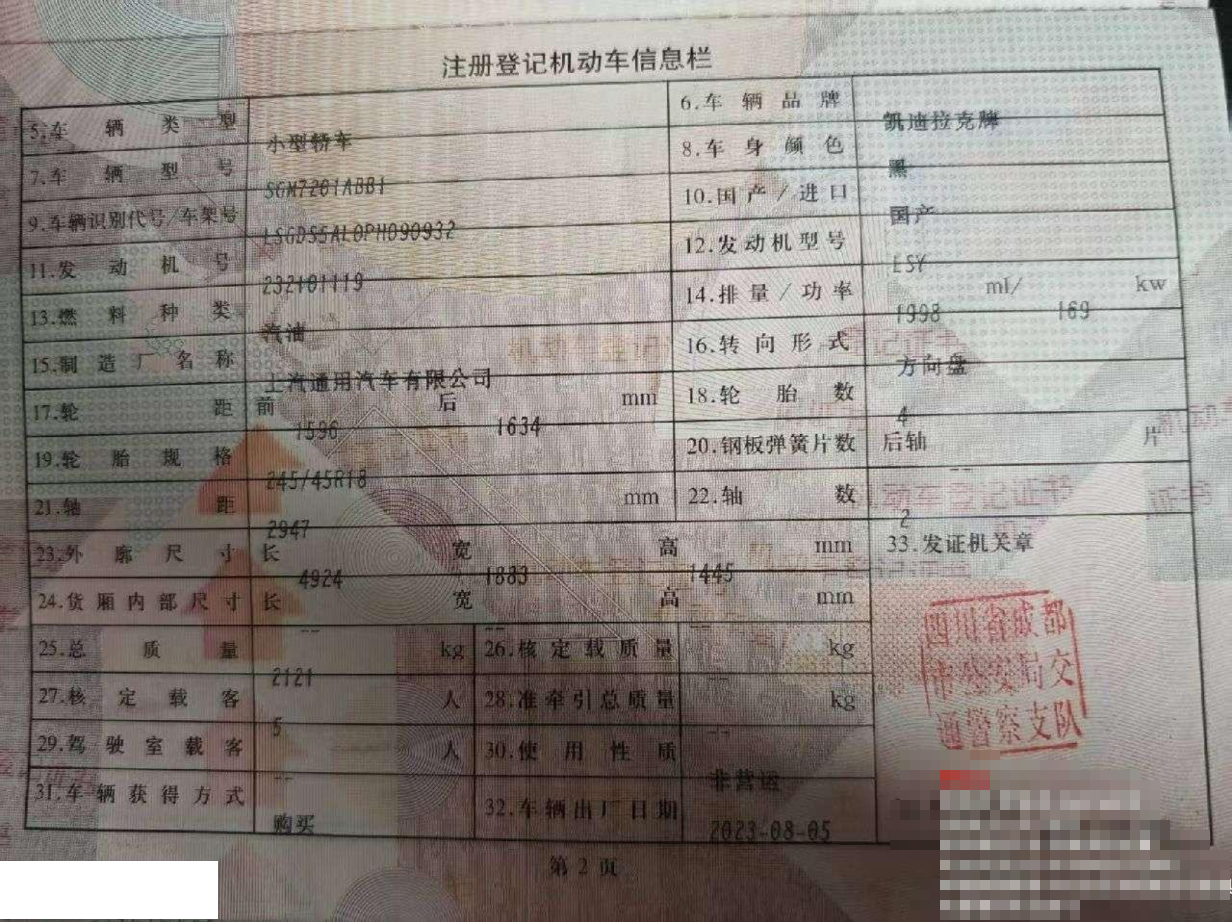 注册登记机动车信息栏
5.车辆类型 小型轿车 6.车辆品牌 凯迪拉克牌
7.车辆型号 SGM7201ABB1 8.车身颜色 黑
9.车辆识别代号/车架号 LSGDS5AL0PH090932 10.国产/进口 国产
11.发动机号 232101119 12.发动机型号 LSY
13.燃料种类 汽油 14.排量/功率 1998 ml/ 169 kw
15.制造厂名称 上汽通用汽车有限公司 16.转向形式 方向盘
17.轮距 前 1596 后 1634 mm 18.轮胎数 4
19.轮胎规格 245/45R18 20.钢板弹簧片数 后轴 -- 片
21.轴距 2947 mm 22.轴数 2
23.外廓尺寸 长 4924 宽 1883 高 1445 mm 33.发证机关章
24.货厢内部尺寸 长 -- 宽 -- 高 -- mm
25.总质量 2121 kg 26.核定载质量 -- kg
27.核定载客 5 人 28.准牵引总质量 -- kg
29.驾驶室载客 -- 人 30.使用性质 非营运
31.车辆获得方式 购买 32.车辆出厂日期 2023-08-05
四川省成都
市公安局交
通警察支队
第 2 页